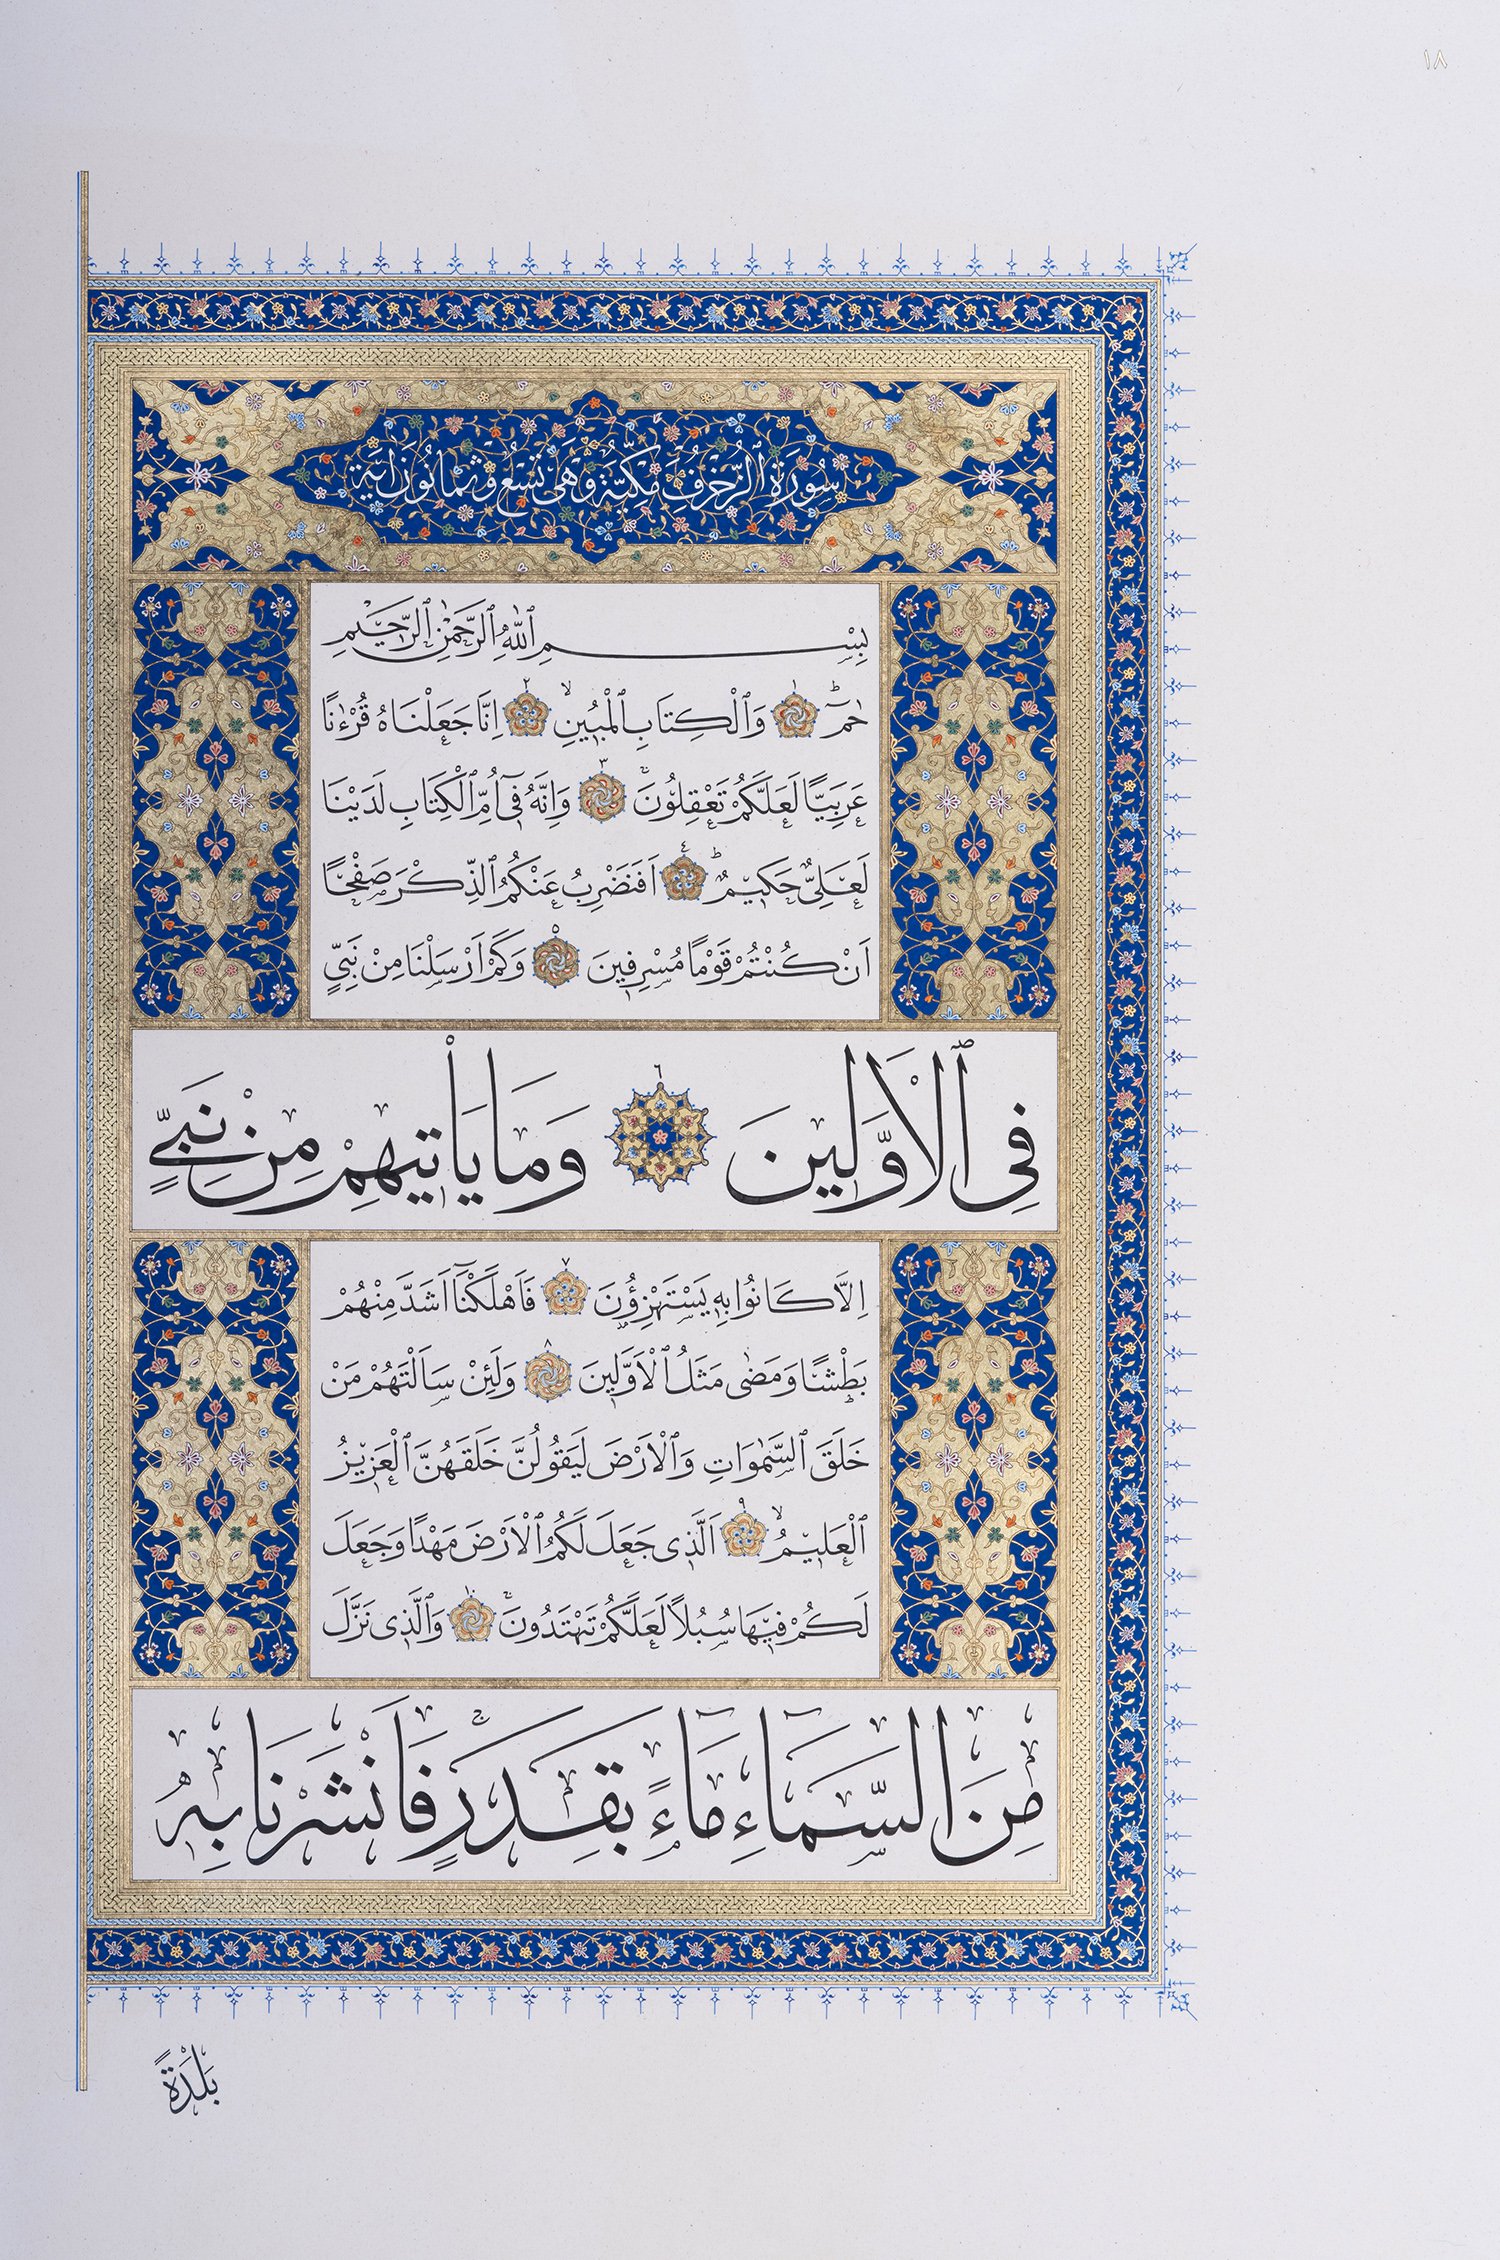 ١٨
سُورَةُ ٱلزُّخْرُفِ مَكِّيَّةٌ وَهِىَ تِسْعٌ وَثَمَانُونَ اٰيَةً
بِسْمِ ٱللّٰهِ ٱلرَّحْمٰنِ ٱلرَّحِيمِ
حٰمٓ ١ وَٱلْكِتَابِ ٱلْمُبِينِ ٢ اِنَّا جَعَلْنَاهُ قُرْءٰنًا
عَرَبِيًّا لَعَلَّكُمْ تَعْقِلُونَ ٣ وَاِنَّهُ فِىٓ اُمِّ ٱلْكِتَابِ لَدَيْنَا
لَعَلِىٌّ حَكِيمٌ ٤ اَفَنَضْرِبُ عَنْكُمُ ٱلذِّكْرَ صَفْحًا
اَنْ كُنْتُمْ قَوْمًا مُسْرِفِينَ ٥ وَكَمْ اَرْسَلْنَا مِنْ نَبِىٍّ
فِى ٱلْاَوَّلِينَ ٦ وَمَا يَاْتِيهِمْ مِنْ نَبِىٍّ
اِلَّا كَانُوا بِهِ يَسْتَهْزِؤُنَ ٧ فَاَهْلَكْنَٓا اَشَدَّ مِنْهُمْ
بَطْشًا وَمَضٰى مَثَلُ ٱلْاَوَّلِينَ ٨ وَلَئِنْ سَاَلْتَهُمْ مَنْ
خَلَقَ ٱلسَّمٰوَاتِ وَٱلْاَرْضَ لَيَقُولُنَّ خَلَقَهُنَّ ٱلْعَزِيزُ
ٱلْعَلِيمُ ٩ اَلَّذِى جَعَلَ لَكُمُ ٱلْاَرْضَ مَهْدًا وَجَعَلَ
لَكُمْ فِيهَا سُبُلًا لَعَلَّكُمْ تَهْتَدُونَ ١٠ وَٱلَّذِى نَزَّلَ
مِنَ السَّمَٓاءِ مَٓاءً بِقَدَرٍ فَاَنْشَرْنَا بِهِ
بَلْدَةً